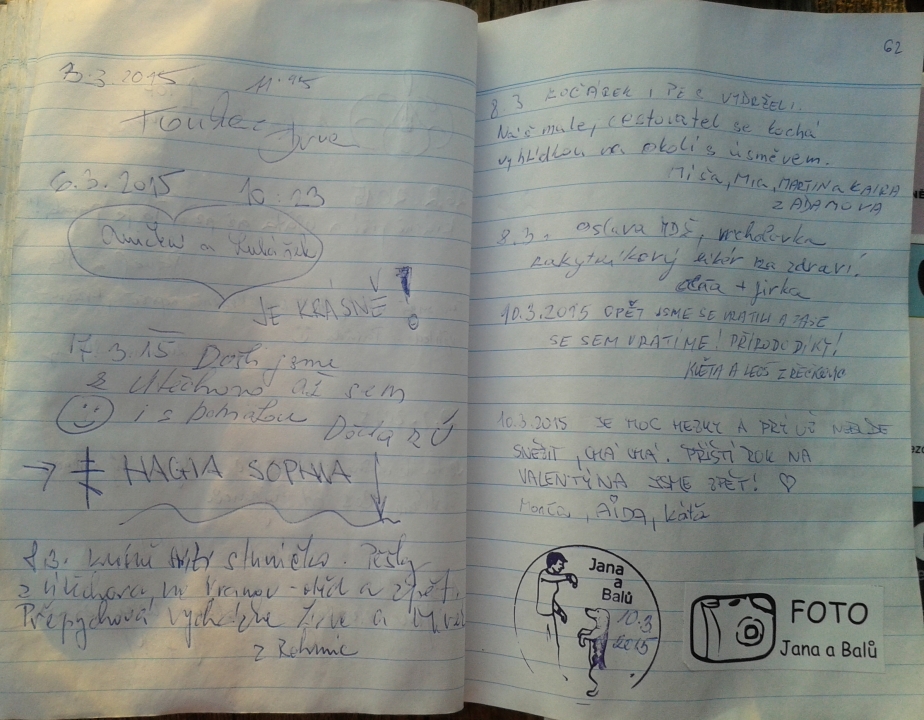 3.3.2015 11:45
6.3.2015 10:23
a
JE KRÁSNĚ!
17.3.15 Došli jsme
z Útěchova až sem
i s pomalou
z Ú
HAGIA SOPHIA
sluníčko. Pěšky
z Útěchova na Vranov - oběd a zpět.
Přepychová vycházka
z
62
8.3 KOČÁREK I PES VYDRŽELI.
Náš malej cestovatel se kochá
vyhlídkou na okolí s úsměvem.
Míša, Mia, MARTIN a KAIRA
Z ADAMOVA
8.3. oslava MDŽ, vrcholovka
rakytníkový likér na zdraví!
+ Jirka
10.3.2015 OPĚT JSME SE VRÁTILI A ZASE
SE SEM VRÁTÍME! PŘÍRODO DÍKY!
KVĚTA A LEOŠ Z
10.3.2015 JE MOC HEZKY A PRÝ UŽ NEBUDE
SNĚŽIT, CHÁ CHÁ. PŘÍŠTÍ ROK NA
VALENTÝNA JSME ZPĚT! ♡
Monča, AIDA, Káťa
Jana
a
Balů
10.3
2015
FOTO
Jana a Balů